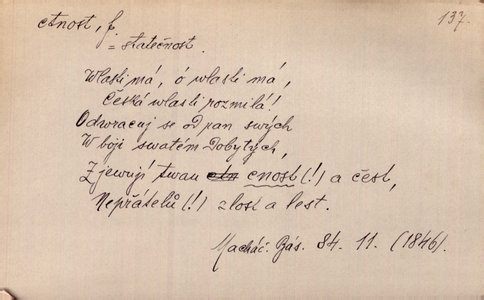 ctnost, f.
137.
= statečnost.
Wlasti má, ó wlasti má,
Česká wlasti rozmilá!
Odwracuj se od ran swých
W boji swatém dobytých,
Zjewují twau cnost (!) a čest,
Nepřátelů (!) zlost a lest.
Macháč. Bás. 84. 11. (1846).